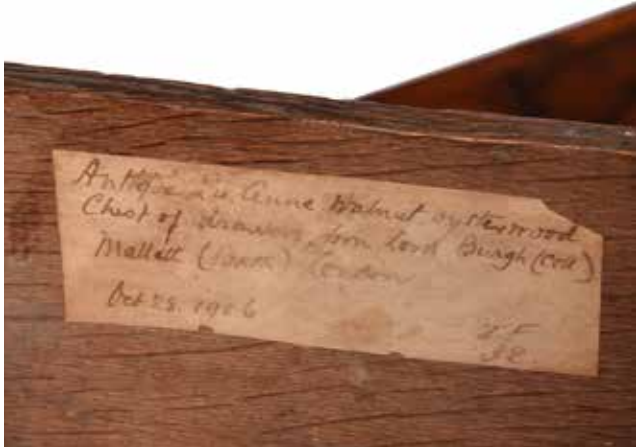 Antique Q. Anne Walnut oysterwood
Chest of drawers from Lord Burgh (Coll)
Mallett London
Oct 28. 1906